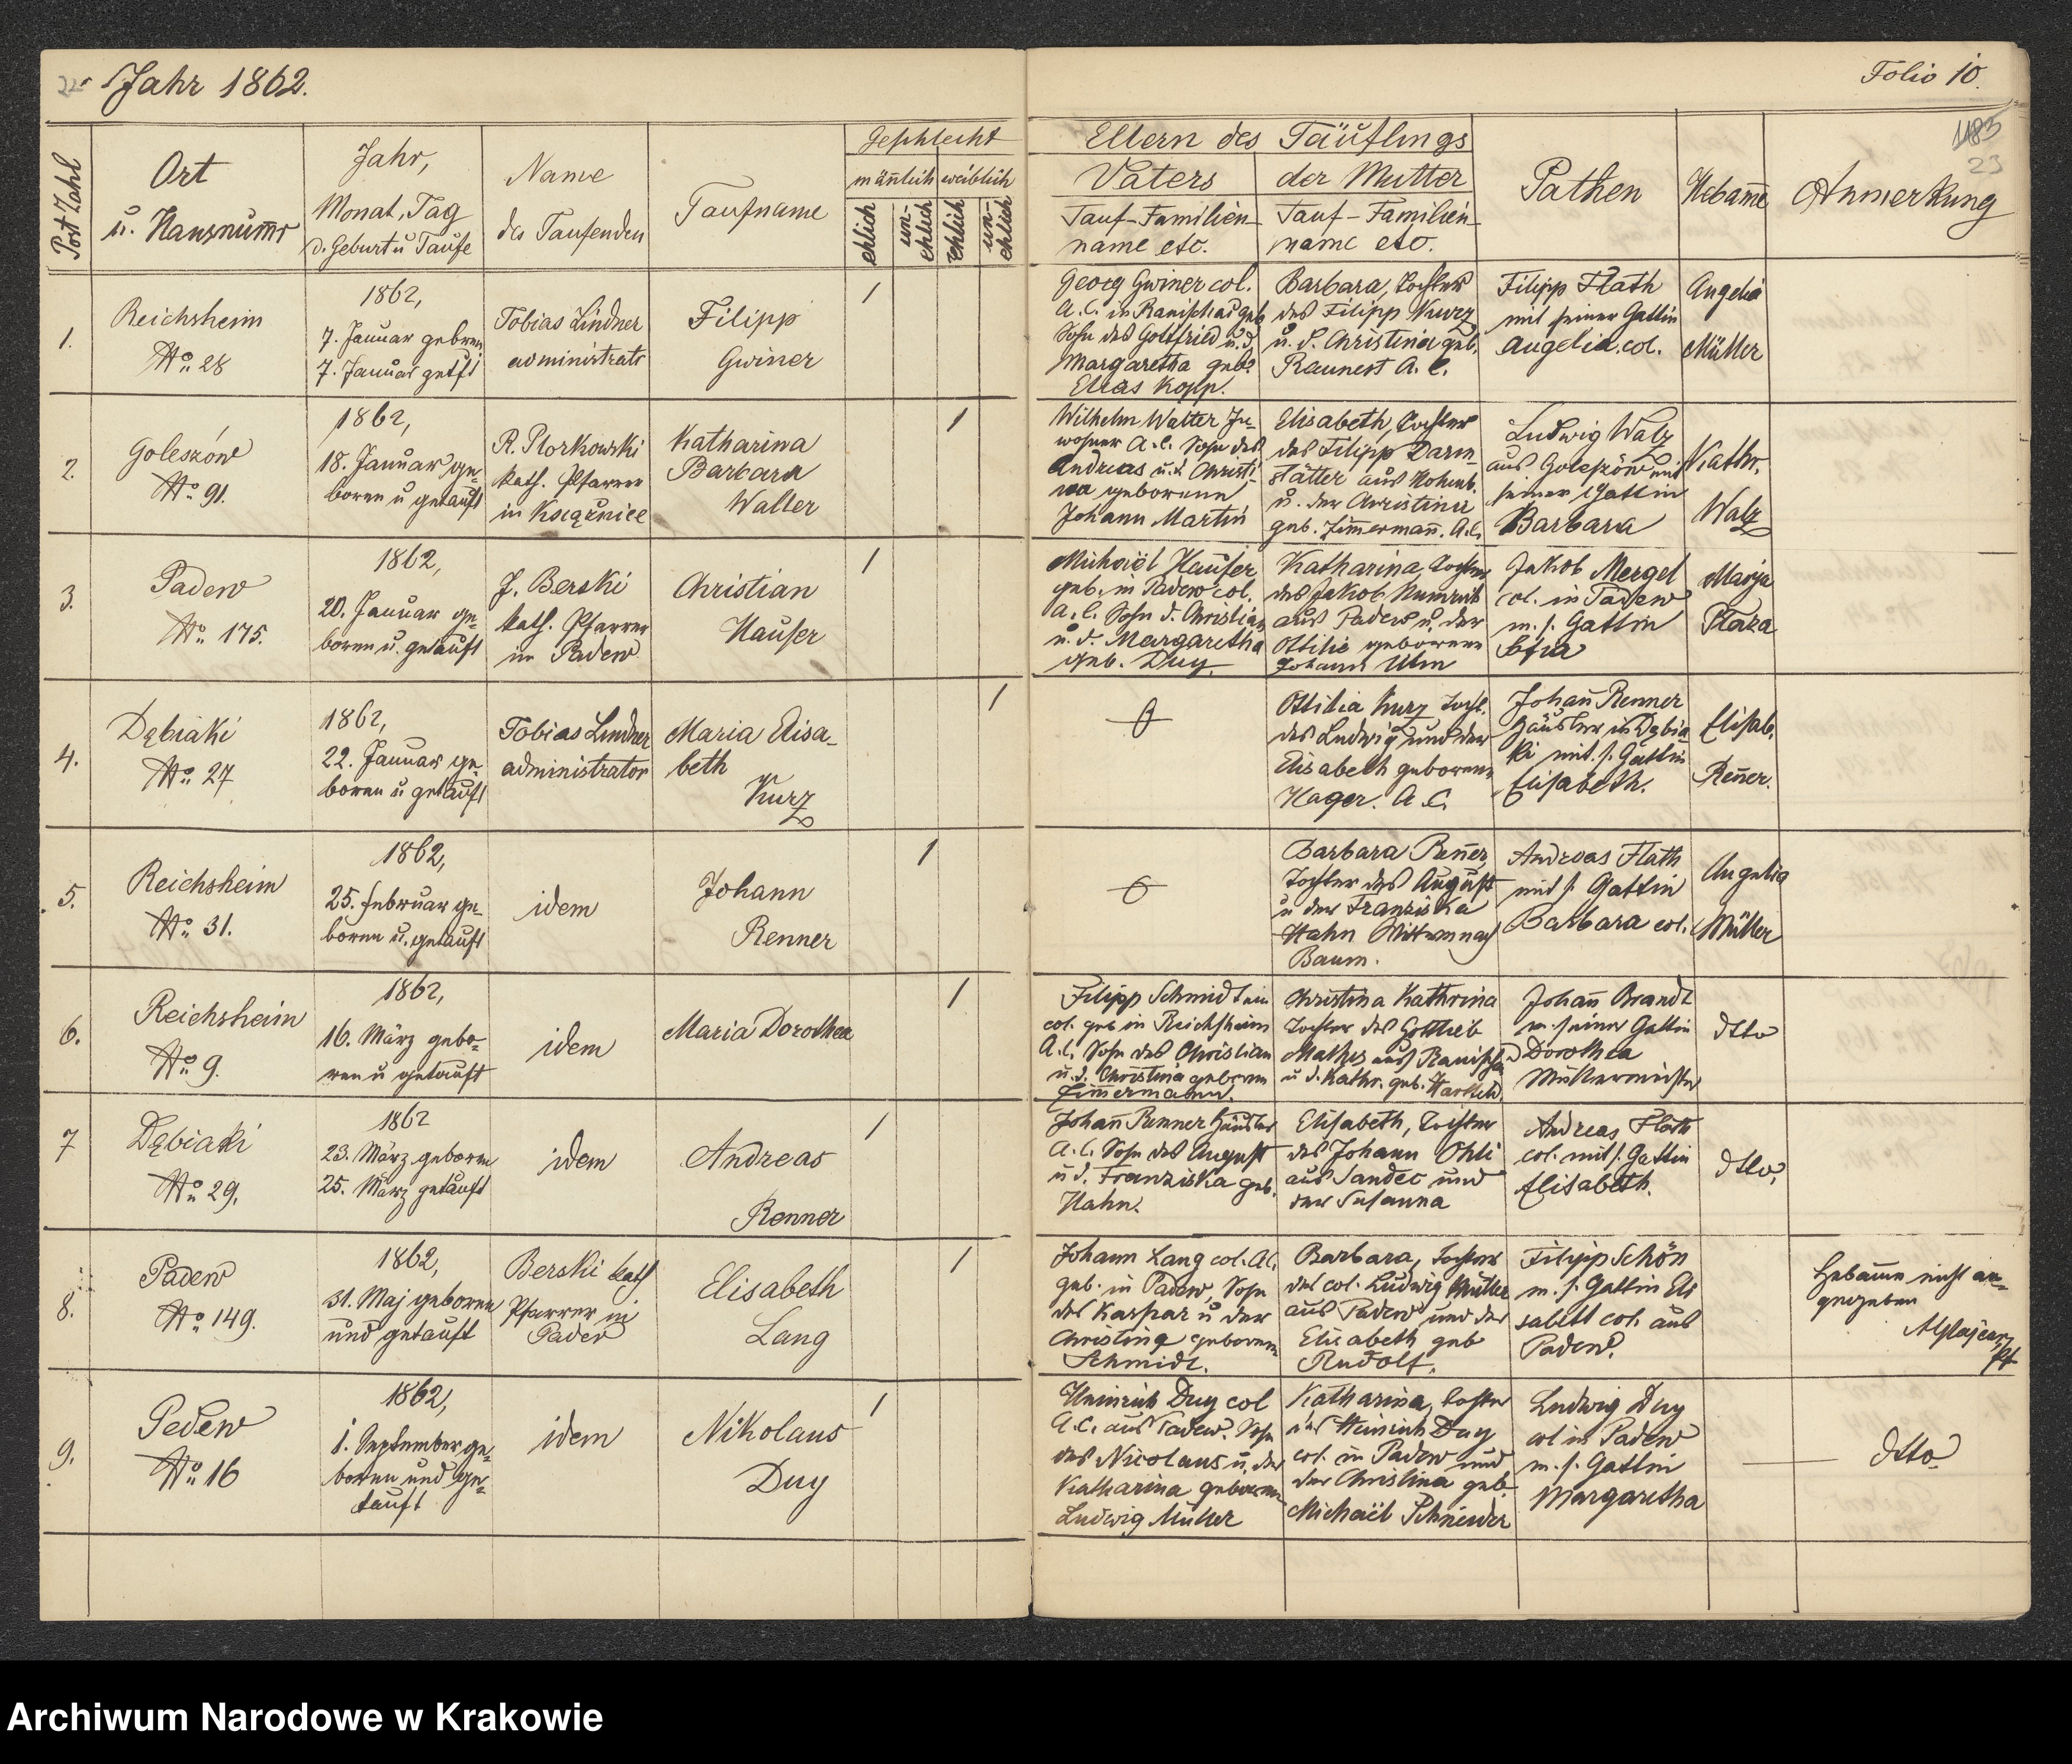 Jahr 1862.
Folio 10.
1183
23
Post Zahl
Ort
u. Hausnumr
Jahr,
Monat, Tag
d. Geburt u Taufe
Name
des Taufenden
Taufname
Geschlecht
mänlich weiblich
ehlich
un-
ehlich
ehlich
un-
ehlich
Eltern des Täuflings
Vaters
der Mutter
Tauf-Familien-
name etc.
Tauf-Familien-
name etc.
Pathen
Hebame
Anmerkung
1.
Reichsheim
No. 28
1862,
7. Januar geboren
7. Januar getft
Tobias Lindner
administrator
Filipp
Gwiner
1
Georg Gwiner col.
A.C. in Ranischau geb
Sohn des Gottfried u. d.
Margaretha geb.
Elias Kopp.
Barbara, Tochter
des Filipp Kurz
u. d. Christina geb.
Raunest A. C.
Filipp Flath
mit seiner Gattin
Angelia. col.
Angelia
Müller
2.
Goleszów
No. 91.
1862,
18. Januar ge-
boren u getauft
R. Piorkowski
kath. Pfarrer
in Książnice
Katharina
Barbara
Walter
1
Wilhelm Walter In-
wohner A.C. Sohn des
Andreas u. d. Christi-
na geborenen
Johann Martin
Elisabeth, Tochter
des Filipp Darm-
stätter aus Hohenb.
u. der Christina
geb. Zimermann. A.C.
Ludwig Walz
aus Goleszów mit
seiner Gattin
Barbara
Kathr.
Walz
3.
Padew
No. 175.
1862,
20. Januar ge-
boren u. getauft
J. Berski
kath. Pfarrer
in Padew
Christian
Hauser
1
Michaël Hauser
geb. in Padew col.
A.C. Sohn d. Christian
u. d. Margaretha
geb. Duy
Katharina Tochter
des Jakob
aus Padew u. der
Ottilie geborenen
Johann Ulm
Jakob Mergel
col. in Padew
m. s. Gattin
Sofia
Marja
Plaza
4.
Dąbiaki
No. 27
1862,
22. Januar ge-
boren u getauft
Tobias Lindner
administrator
Maria Elisa-
beth
Kurz
1
Ottilia Kurz Tocht.
des Ludwig und der
Elisabeth geborenen
Hager. A.C.
Johan Renner
Häusler in Dąbia-
ki mit. s. Gattin
Elisabeth.
Elisab.
Rener.
5.
Reichsheim
No. 31.
1862,
25. Februar ge-
boren u. getauft
idem
Johann
Renner
1
Barbara Rener,
Tochter des August
u der Franziska
Hahn Wittwe nach
Baum.
Andreas Flath
mit s. Gattin
Barbara col.
Angelia
Müller
6.
Reichsheim
No 9.
1862,
16. März gebo-
ren u getauft
idem
Maria Dorothea
1
Filipp Schmidt ein
col. geb in Reichsheim
A.C. Sohn des Christian
u. d. Christina geboren
Zimermann.
Christina Kathrina
Tochter des Gottlieb
Mathes aus Ranischau
u d. Kathr. geb.
Johan Brandt
m. seiner Gattin
Dorothea
Müllermeister
dtto
7
Dąbiaki
No. 29.
1862
23. März geboren
25. März getauft
idem
Andreas
Renner
1
Johan Renner Häusler
A.C. Sohn des August
u d. Franziska geb.
Hahn.
Elisabeth, Tochter
des Johann Ohli
aus Sandec und
der Susanna
Andreas Flath
col. mit s. Gattin
Elisabeth.
dtto,
8.
Padew
No. 149.
1862,
31. Maj geboren
und getauft
Berski kath
Pfarrer in
Padew
Elisabeth
Lang
1
Johann Lang col. A.C.
geb. in Padew, Sohn
des Kaspar u der
Christina geborenen
Schmidt.
Barbara, Tochter
des col. Ludwig Müller
aus Padew und der
Elisabeth geb
Rudolf.
Filipp Schön
m. s. Gattin Eli
sabett col. aus
Padew.
Hebamme nicht an-
gegeben
9.
Pedew
No. 16
1862,
1. September ge-
boren und ge-
tauft
idem
Nikolaus
Duy
1
Heinrich Duy col
A.C. aus Padew. Sohn
des Nicolaus u. der
Katharina geborenen
Ludwig Müller
Katharina, Tochter
des Heinrich Duy
col. in Padew und
der Christina geb.
Michaël Schneider
Ludwig Duy
col in Padew
m. s. Gattin
Margaretha
dtto
Archiwum Narodowe w Krakowie